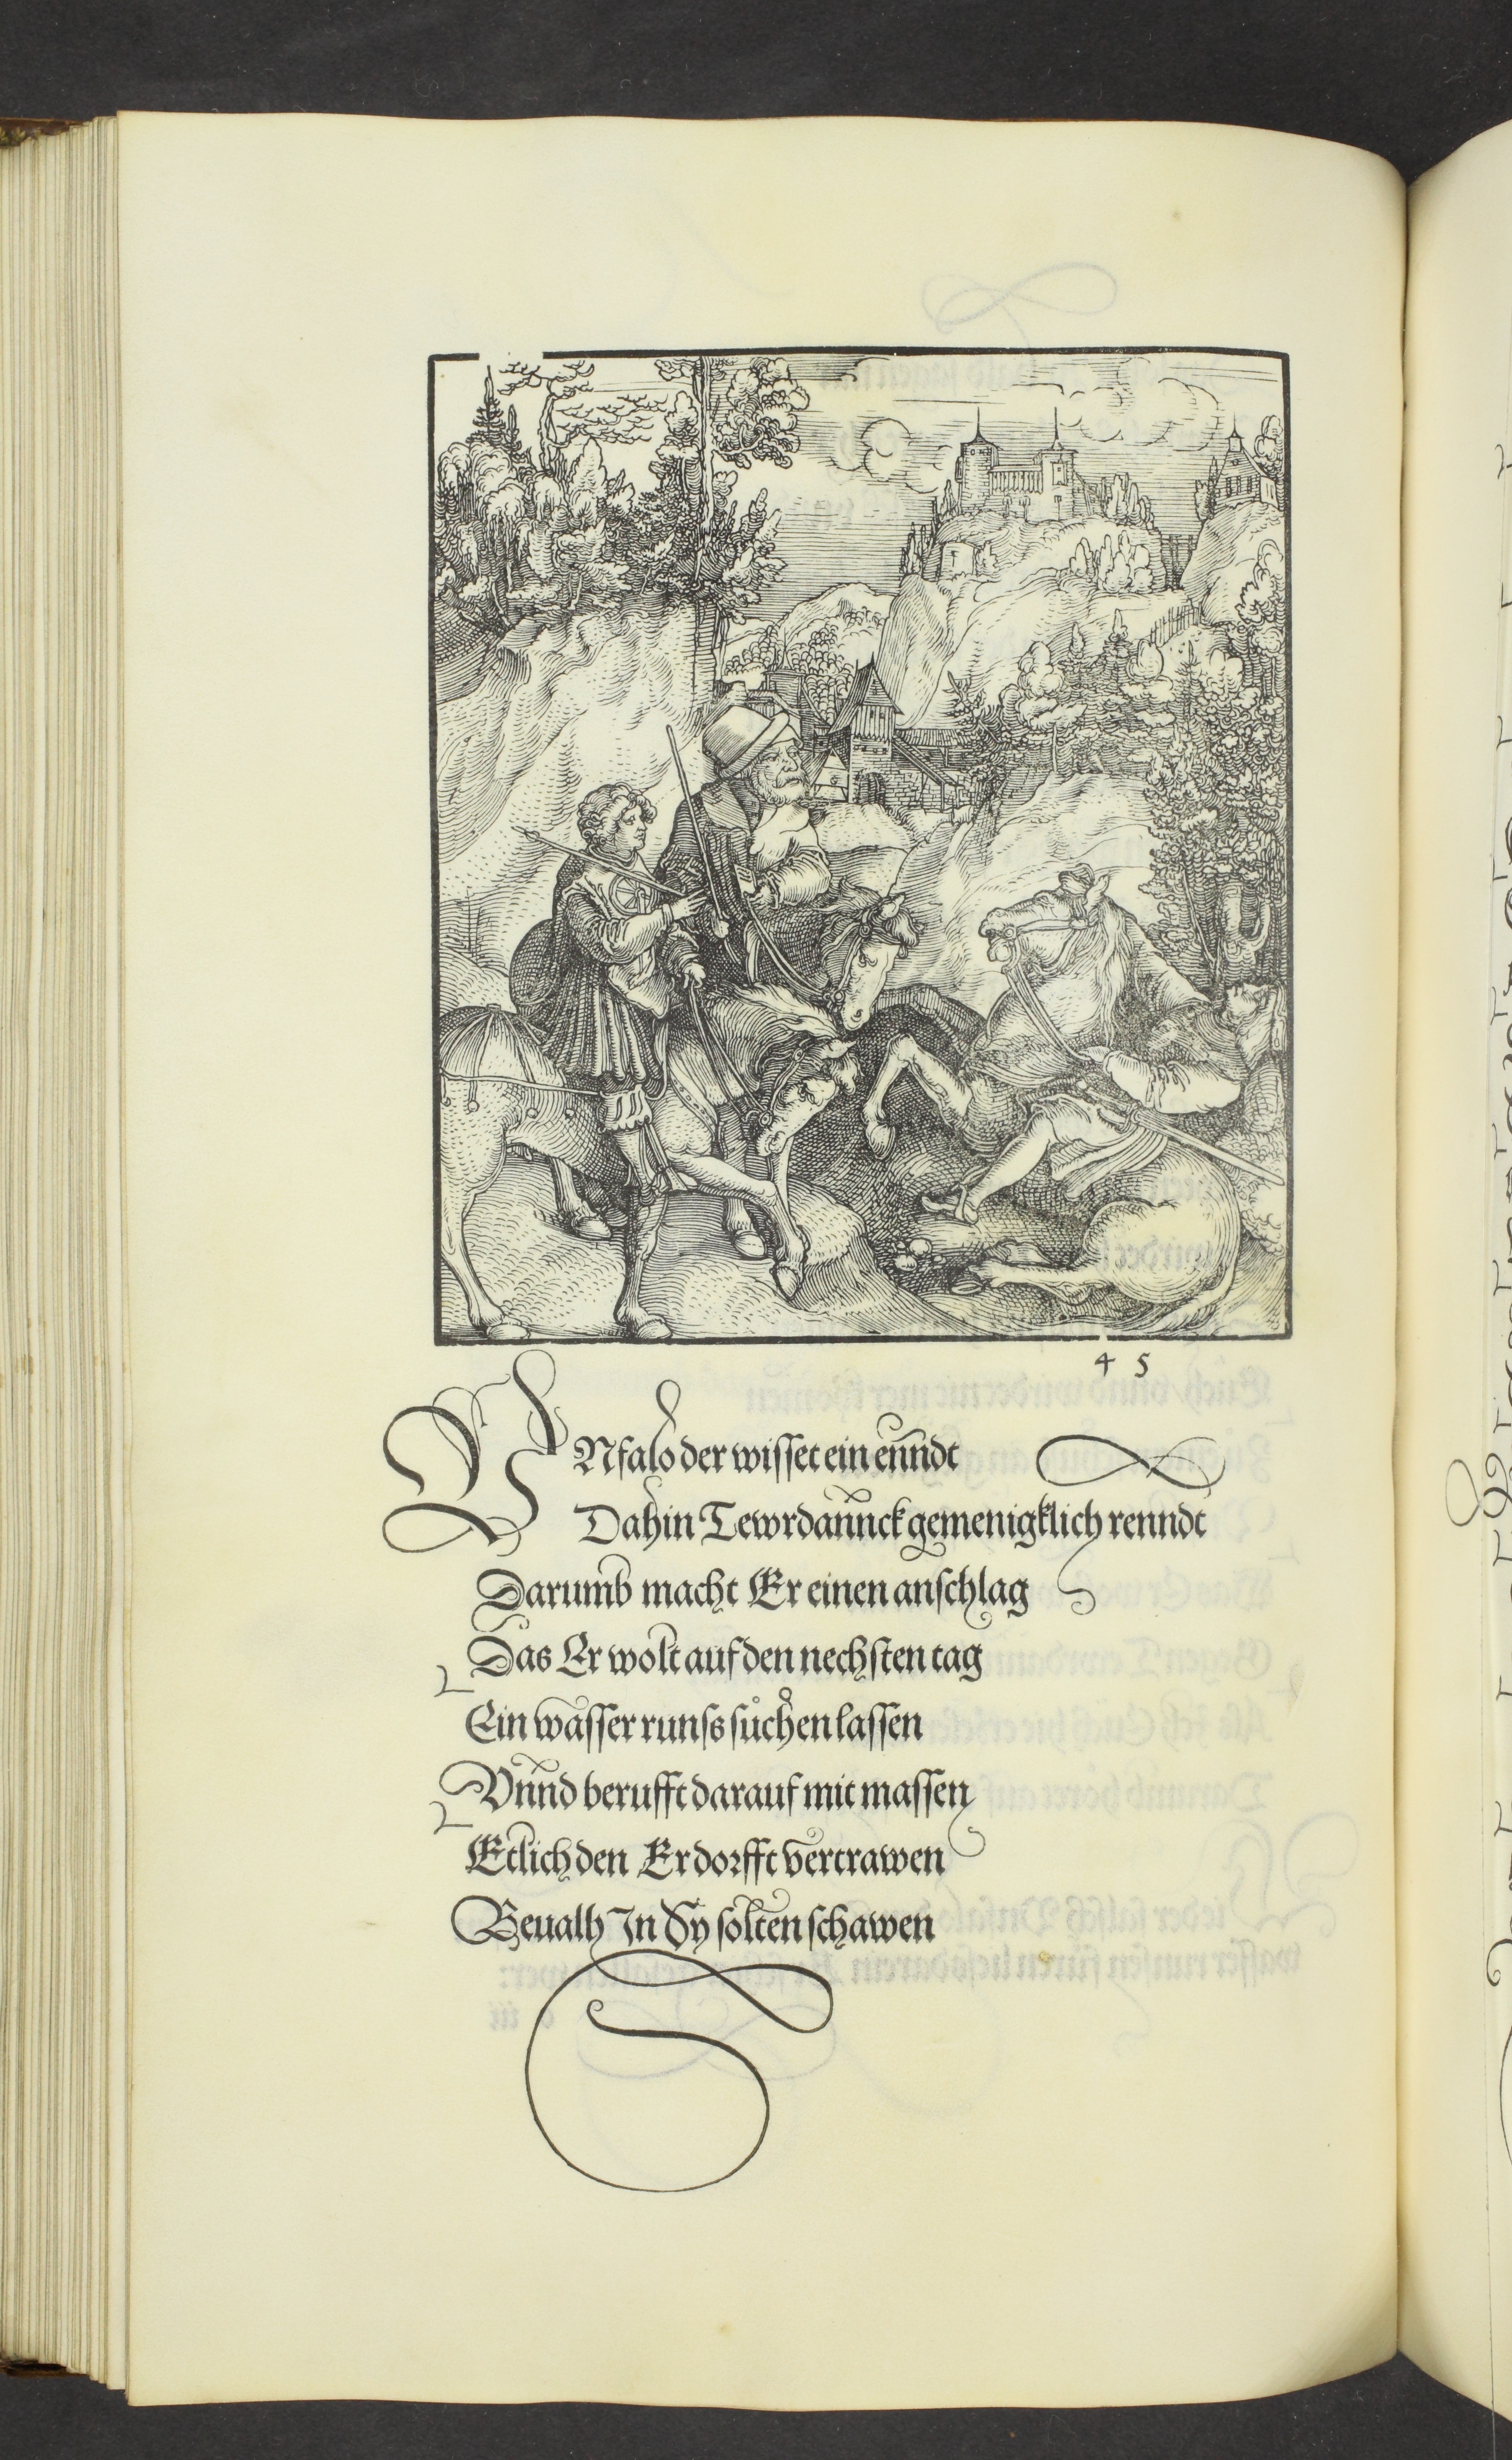 4 5
VNfalo der wisset ein enndt
Dahin Tewrdannck gemenigklich renndt
Darumb macht Er einen anschlag
Das Er wolt auf den nechsten tag
Ein wasser runss sůchen lassen
Vnnd berufft darauf mit massen
Etlich den Er dorfft vertrawen
Beualh In Sy solten schawen